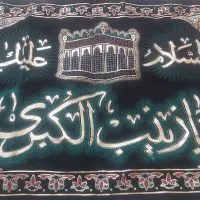 السلام عليك
يا زينب الكبرى